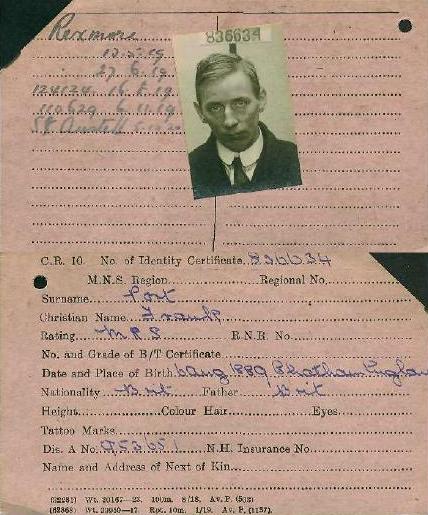 Rexmore
12.5.19
27.6.19
124124 16.8.19
110629 6.11.19
St Austell
836634
C.R. 10. No. of Identity Certificate 836634
M.N.S. Region Regional No.
Surname Port
Christian Name Frank
Rating R.N.R. No.
No. and Grade of B/T Certificate
Date and Place of Birth 1889 Chatham England
Nationality Brit Father Brit
Height Colour Hair Eyes
Tattoo Marks
Dis. A No. 953651 N.H. Insurance No.
Name and Address of Next of Kin
(52251) Wt. 20167—23. 100m. 8/18. Av. P. (502)
Rpt. 10m. 1/19. Av. P. (1157).